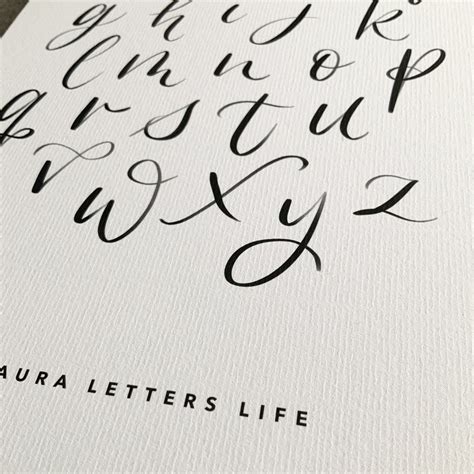 g h i j k
l m n o p
q r s t u
v w x y z
AURA LETTERS LIFE